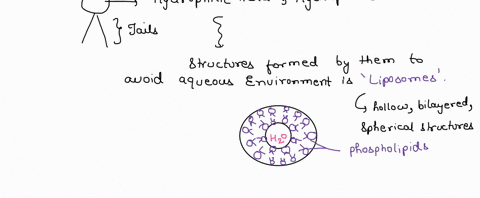 } Tails
Structures formed by them to
avoid aqueous Environment is 'Liposomes'.
↳ hollow, bilayered,
Spherical structures
H₂O
phospholipids